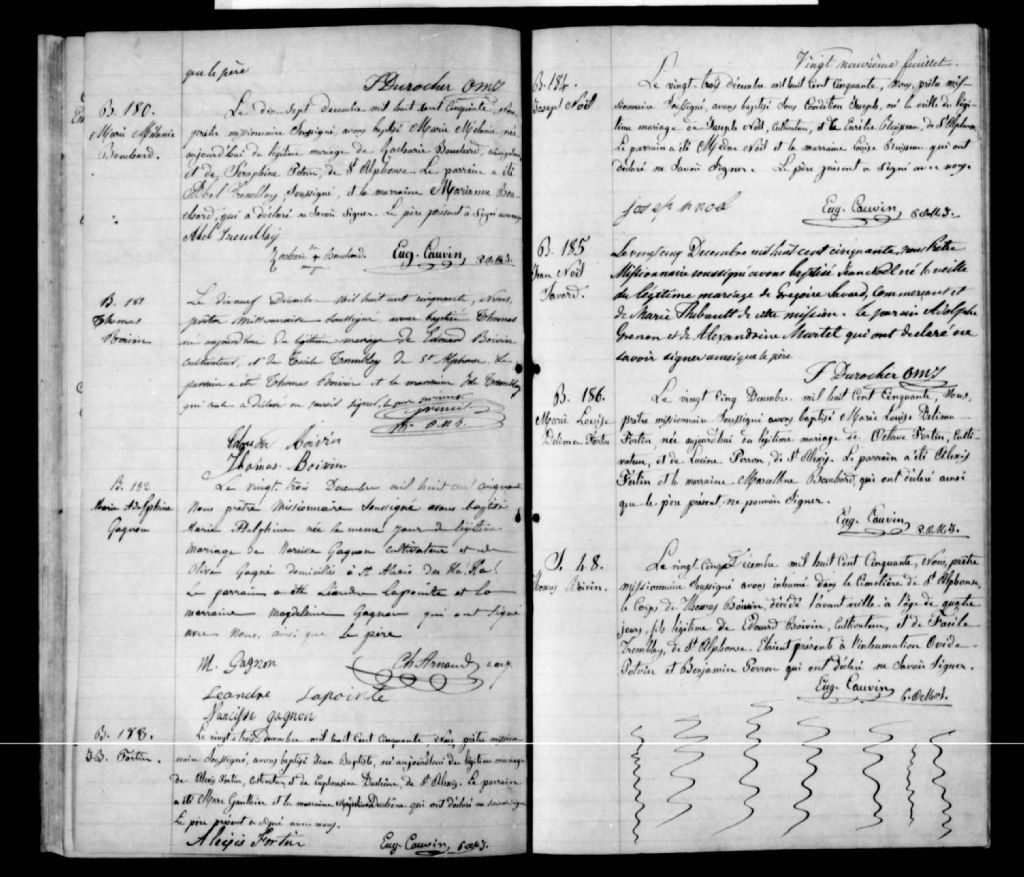 que le père
F Durocher OMI
B. 180.
Marie Mélanie
Bouchard.
Le dix sept decembre mil huit cent Cinquante, nous
prêtre missionnaire Soussigné, avons baptisé Marie Mélanie, née
aujourd'hui du légitime mariage de Zacharie Bouchard,
et de Séraphine Potvin, de St Alphonse. Le parrain a été
Abel Tremblay, Soussigné, et la marraine Marianne Bou-
chard, qui a déclaré ne Savoir Signer. Le père présent a Signé avec nous
Abel Tremblay
Zacharie Bouchard. Eug. Cauvin, P.O.M.I.
B. 181
Thomas
Boivin
Le dixneuf Décembre mil huit cent cinquante, Nous,
prêtre missionnaire soussigné avons baptisé Thomas
né aujourd'hui du légitime mariage de Edouard Boivin
cultivateur, et de Cécile Tremblay de St Alphonse. Le
parrain a été Thomas Boivin et la marraine Tremblay
qui ont déclaré ne savoir signer,
Ptr. O.M.I.
Boivin
Thomas Boivin
B. 182
Marie Adelphine
Gagnon
Le vingt-trois Decembre mil huit cent cinquante
Nous prêtre Missionnaire Soussigné avons baptisé
Marie Adelphine née le meme jour du légitime
Mariage de Narcisse Gagnon cultivateur et de
Olive Gagné domiciliés à St Alexis des Ha! Ha!
Le parrain a été Léandre Lapointe et la
marraine Magdeleine Gagnon qui ont signé
avec Nous, ainsi que le père
M. Gagnon Ch Arnaud
Leandre Lapointe
Narcisse gagnon
B. 183.
J.B. Fortin.
Le vingt-trois decembre mil huit cent Cinquante Nous prêtre mission-
naire Soussigné, avons baptisé Jean Baptiste, né aujourd'hui du légitime mariage
de Alexis Fortin, cultivateur, et de Euphrosine Duchêne, de St Alexis. Le parrain
a été Marc Gauthier et la marraine Duchêne qui ont déclaré ne savoir signer
Le père présent a signé avec nous.
Alexis Fortin Eug. Cauvin, P.O.M.I.
Vingt neuvième feuillet.
B. 184.
Joseph Noël
Le vingt trois décembre mil huit cent Cinquante, Nous, prêtre mis-
sionnaire Soussigné, avons baptisé Sous Condition Joseph, né la veille du légi-
time mariage de Joseph Noël, Cultivateur, et de Emélie, de St Alphonse.
Le parrain a été Médar Noël et la marraine Louise qui ont
déclaré ne Savoir Signer. Le père présent a Signé avec nous.
Josef nnoel Eug. Cauvin, P.O.M.I.
B. 185
Jean Noël
Savard.
Le vingt cinq Decembre mil huit cent cinquante, nous Prêtre
Missionnaire soussigné avons baptisé Jean Noël né la veille
du légitime mariage de Grégoire Savard, Commerçant et
de Marie Thibault de cette mission. Le parain Adolphe
Grenon et de Alexandrine Martel qui ont declaré ne
savoir signer ainsi que le père
F Durocher OMI
B. 186.
Marie Louise
Delima Fortin
Le vingt cinq Decembre mil huit cent Cinquante, Nous,
prêtre missionnaire Soussigné avons baptisé Marie Louise Delima
Fortin, née aujourd'hui du légitime mariage de Octave Fortin, Culti-
vateur, et de Lucine Perron, de St Alexis. Le parrain a été Alexis
Fortin et la marraine Bouchard, qui ont déclaré ainsi
que le père présent, ne pouvoir Signer.
Eug. Cauvin, P.O.M.I.
S. 48.
Thomas Boivin.
Le vingt cinq Décembre mil huit Cent Cinquante, Nous, prêtre
missionnaire Soussigné avons inhumé dans le Cimetière de St Alphonse,
le Corps de Thomas Boivin, décédé l'avant veille à l'âge de quatre
jours, fils légitime de Edouard Boivin, Cultivateur, et de Cécile
Tremblay, de St Alphonse. Etaient présents à l'inhumation Ovide
Potvin et Benjamin Perron qui ont déclaré ne Savoir Signer.
Eug. Cauvin, P.O.M.I.